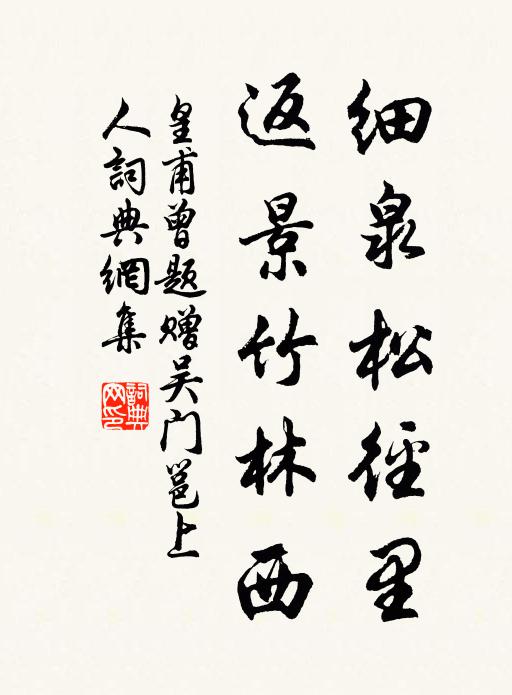 细泉松径里
返景竹林西
皇甫曾题赠吴门邕上
人詞典網集
詞典
网印